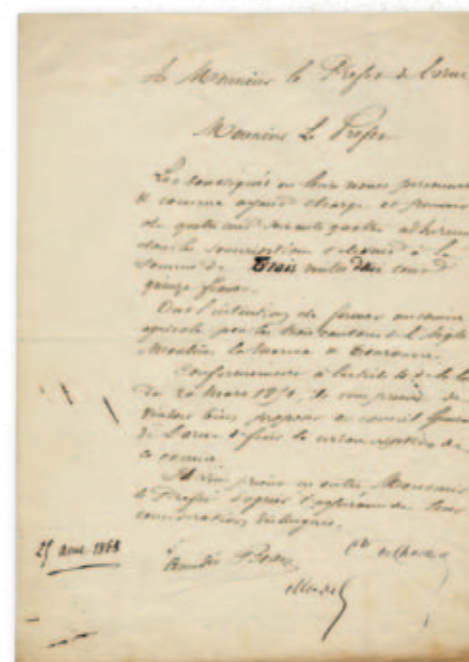 A Monsieur le Préfet de l'orne
Monsieur Le Préfet
Les soussignés en leur noms personnels
et comme ayant charge et pouvoir
de quatre cent soixante quatre adhérents
dont la souscription s'élevant à la
somme de Trois milles deux cent
quinze francs.
Ont l'intention de former un comice
agricole pour les trois cantons de l'Aigle
Moulins la marche et Tourouvre.
Conformement à l'article de la loi
de 20 Mars 1851, ils vous prient de
vouloir bien proposer au conseil général
de l'orne de fixer la circonscription de
ce comice.
Ils vous prient en outre Monsieur
le Préfet d'agréer l'assurance de leur
considération distinguée.
25 1868